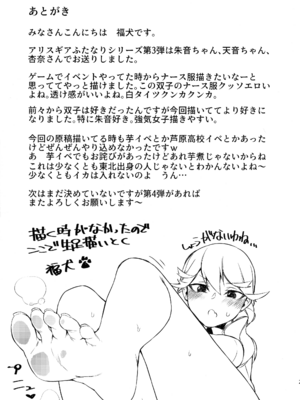 あとがき
みなさんこんにちは　福犬です。
アリスギアふたなりシリーズ第3弾は朱音ちゃん、天音ちゃん、
杏奈さんでお送りしました。
ゲームでイベントやってた時からナース服描きたいなーと
思っててやっと描けました。この双子のナース服クッソエロい
よね。透け感がいいよね。白タイツクンカクンカ。
前々から双子は好きだったんですが今回描いててより好きに
なりました。特に朱音好き。強気女子描きやすい。
今回の原稿描いてる時も芋イベとか芦原高校イベとかあった
けどぜんぜんやり込めなかったですｗ
あ　芋イベでもお詫びがあったけどあれ芋煮じゃないからね
これは少なくとも東北出身の人じゃないとわかんないよね～
少なくともイカは入れないのよ　うん…
次はまだ決めていないですが第4弾があれば
またよろしくお願いします～
描く時がなかったので
ここで生足描いとく
福犬
しょうがないわね…